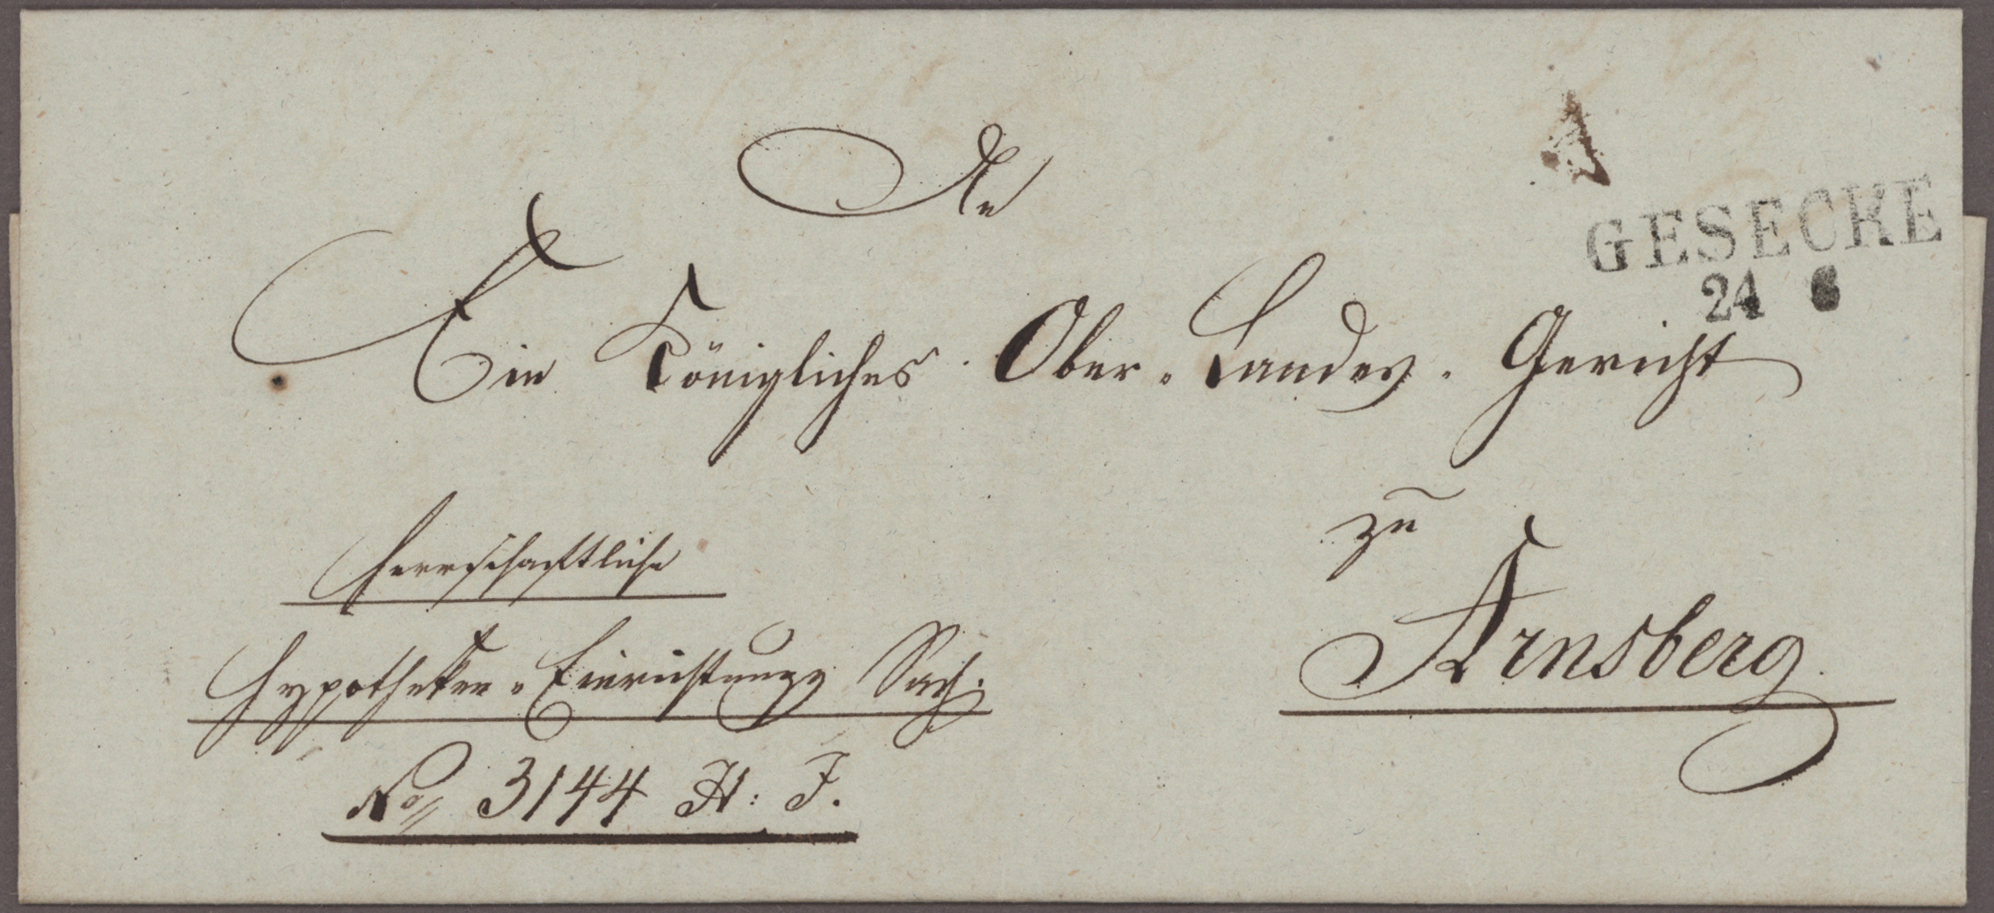 An
GESECKE
24 6
Ein Königliches Ober-Landes-Gericht
zu
Arnsberg
Herrschaftliche
Hypotheken-Einrichtungs Sach.
No 3144 H: J.